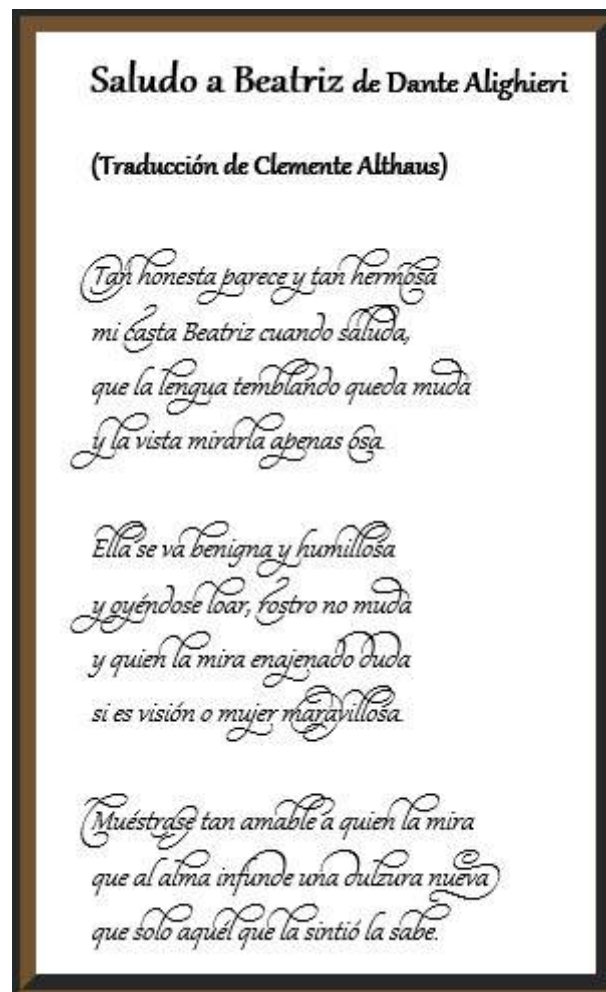 Saludo a Beatriz de Dante Alighieri
(Traducción de Clemente Althaus)
Tan honesta parece y tan hermosa
mi casta Beatriz cuando saluda,
que la lengua temblando queda muda
y la vista mirarla apenas osa.
Ella se va benigna y humillosa
y oyéndose loar, rostro no muda
y quien la mira enajenado duda
si es visión o mujer maravillosa.
Muéstrase tan amable a quien la mira
que al alma infunde una dulzura nueva
que solo aquél que la sintió la sabe.